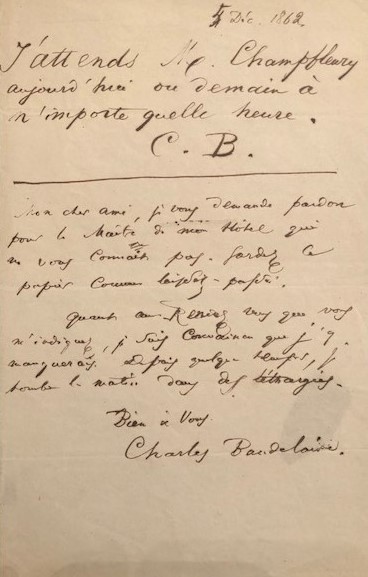 4 Déc. 1862
J'attends Mr. Champfleury
aujourd'hui ou demain à
n'importe quelle heure.
C. B.
Mon cher ami, je vous demande pardon
pour le Maître de mon Hôtel qui
ne vous connaît pas. Gardez ce
papier comme laissez-passer.
Quant au Rendez vous que vous
m'indiquez, je suis convaincu que j'y
manquerais. Depuis quelque temps, je
tombe le matin dans des léthargies.
Bien à Vous.
Charles Baudelaire.